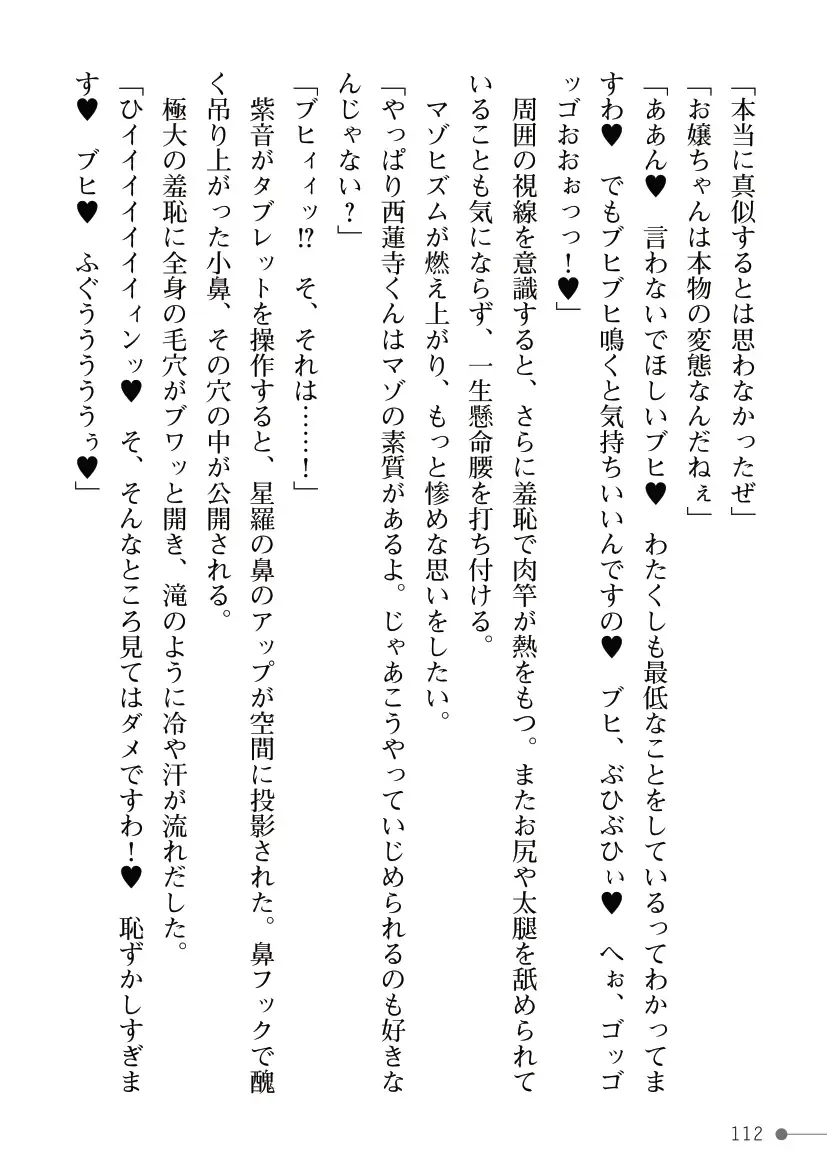 「本当に真似するとは思わなかったぜ」
「お嬢ちゃんは本物の変態なんだねぇ」
「ああん♥　言わないでほしいブヒ♥　わたくしも最低なことをしているってわかってま
すわ♥　でもブヒブヒ鳴くと気持ちいいんですの♥　ブヒ、ぶひぶひぃ♥　へぉ、ゴッゴ
ッゴおおぉっっ！♥」
　周囲の視線を意識すると、さらに羞恥で肉竿が熱をもつ。またお尻や太腿を舐められて
いることも気にならず、一生懸命腰を打ち付ける。
　マゾヒズムが燃え上がり、もっと惨めな思いをしたい。
「やっぱり西蓮寺くんはマゾの素質があるよ。じゃあこうやっていじめられるのも好きな
んじゃない？」
「ブヒィィッ!?　そ、それは……！」
　紫音がタブレットを操作すると、星羅の鼻のアップが空間に投影された。鼻フックで醜
く吊り上がった小鼻、その穴の中が公開される。
　極大の羞恥に全身の毛穴がブワッと開き、滝のように冷や汗が流れだした。
「ひイイイイイイイィンッ♥　そ、そんなところ見てはダメですわ！♥　恥ずかしすぎま
す♥　ブヒ♥　ふぐうううううぅ♥」
112